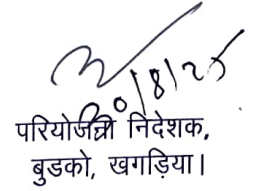 20/8/25
परियोजना निदेशक,
बुडको, खगड़िया।